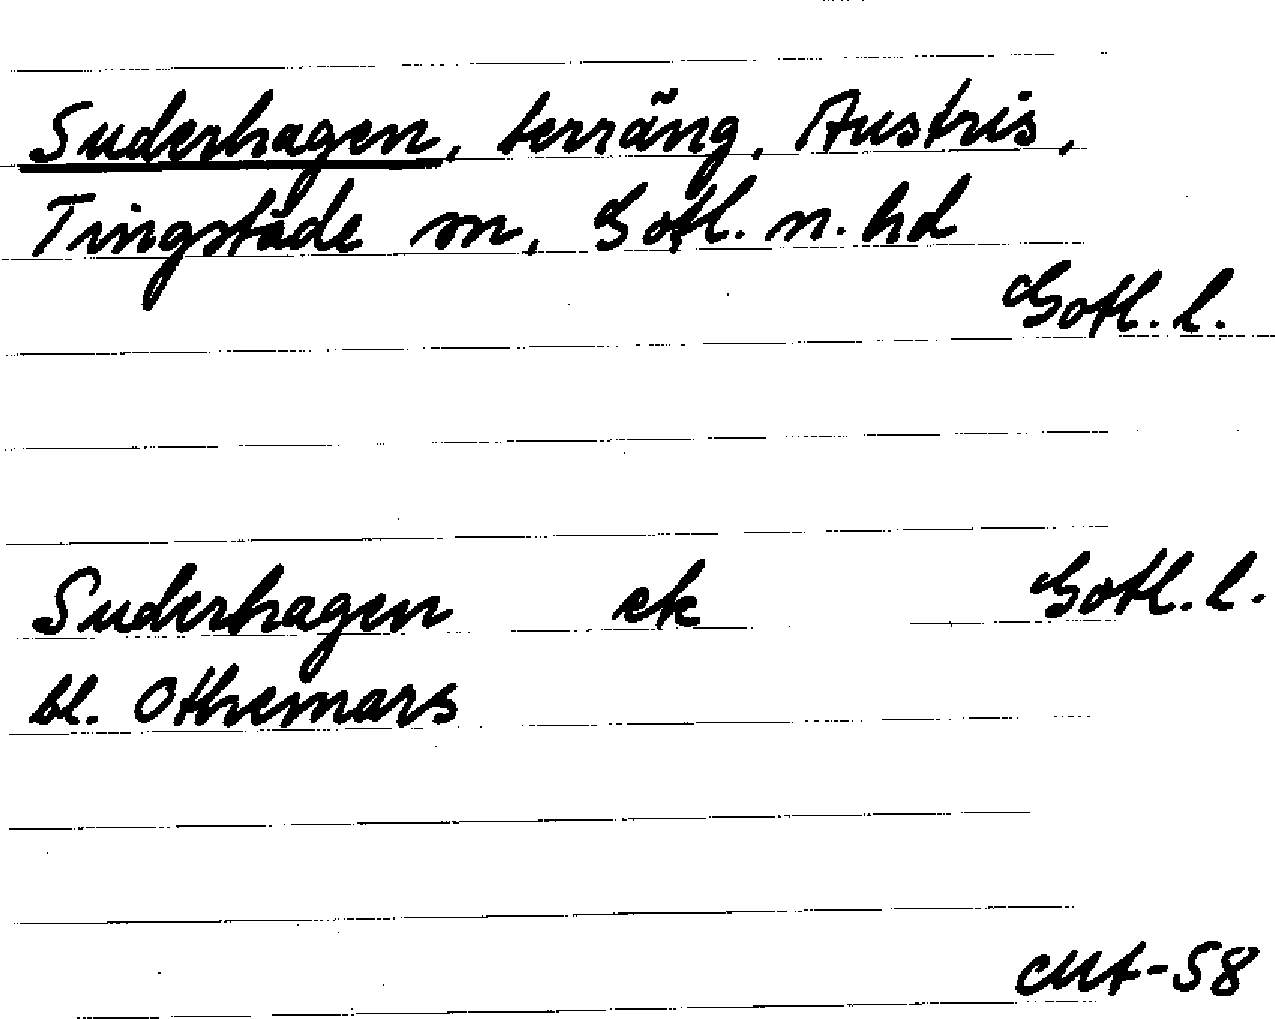 Suderhagen, terräng, Austris,
Tingstäde sn, Gotl. n. hd
Gotl. l.
Suderhagen ek Gotl. l.
bl. Othemars
CMt-58